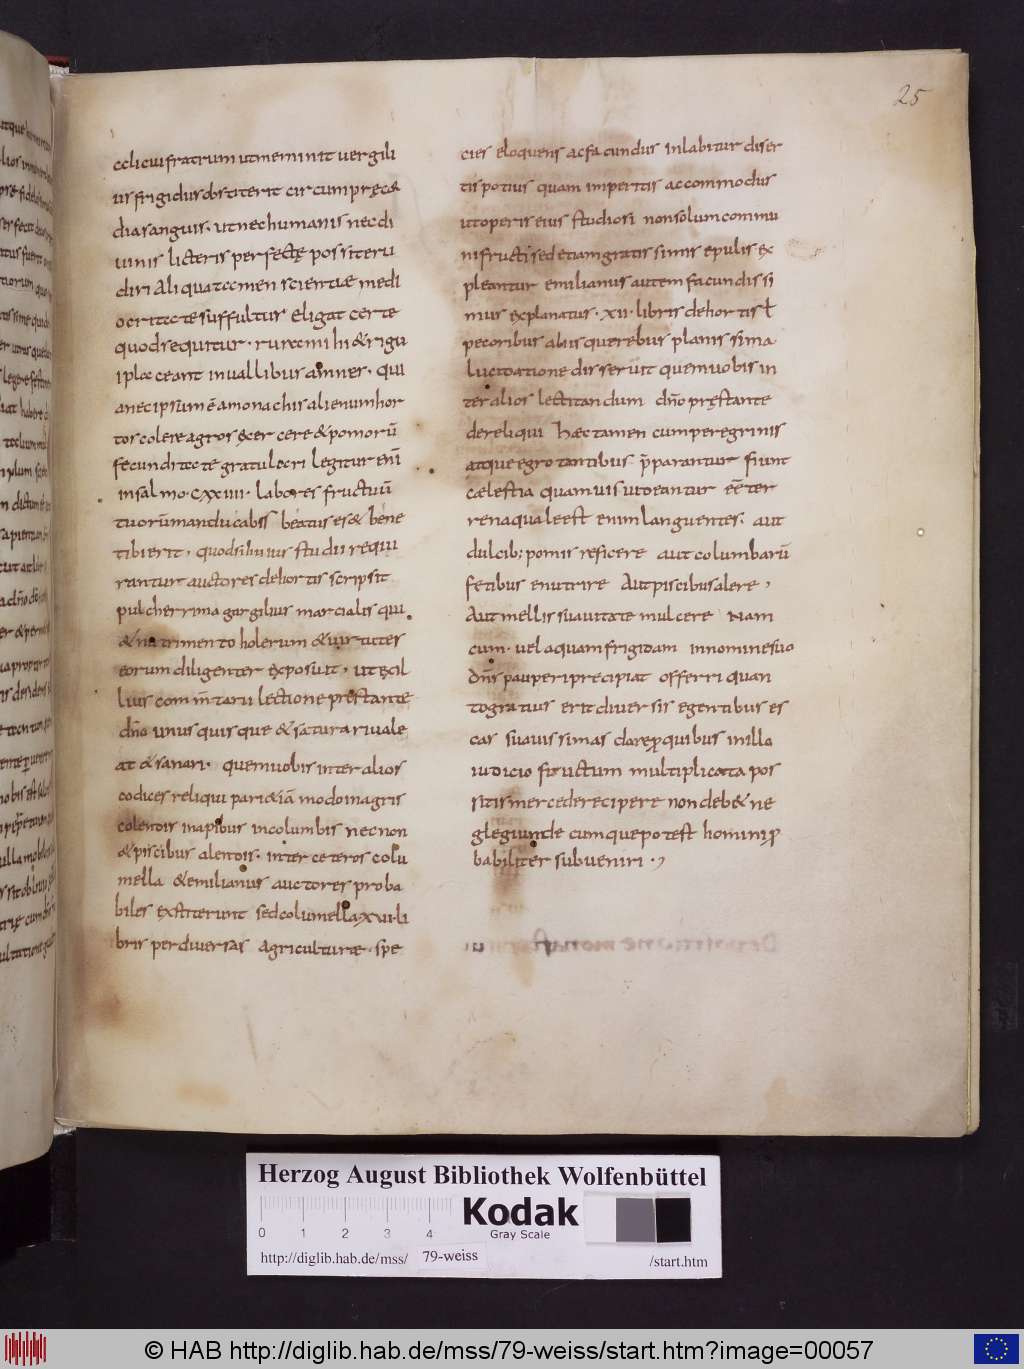 25
ac licui fratrum ut meminit uergili
us frigidus obstiterit circum pręco&
dia sanguis. ut nec humanis nec di
uinis licteris perfectę possit eru
diri Aliqua tamen scientiae medi
ocritate suffultus eligat certe
quod sequitur. rura mihi & rigu
i placeant in uallibus amnes. qui
a nec ipsum ē a monachis alienum hor
tos colere agros exercere & pomorū
fecunditate gratulari legitur enī
in salmo. cxxuii. labores fructuū
tuorū manducabis beatus es & bene
tibi erit. quod si huius studii requi
rantur auctores de hortis scripsit
pulcherrima gargilius marcialis qui
& natrimento holerum & uirtutes
eorum diligenter exposuit. ut ex il
lius commtarii lectione pręstante
dño unus quisque & saturari uale
at & sanari. quem uobis inter alios
codices reliqui pari & iā modo in agris
colendis in apibus in columbis nec non
& piscibus alendis. inter ceteros colu
mella & emilianus auctores proba
biles exstiterunt sed columella. xui. li
bris per diuersas agriculturæ. spe
cies eloquens ac facundus inlabitur diser
tis potius quam impertis accommodus
ut operis eius studiosi non solum commu
ni fructi sed etiam gratissimis epulis ex
pleantur emilianus autem facundissi
mus explanatus. xii. libris de hortis ł
pecoribus aliisque rebus planissima
lucidatione disseruit quem uobis in
ter alios lectitandum dño pręstante
dereliqui Hæc tamen cum peregrinis
atque egrotantibus p̄parantur fiunt
cælestia quamuis uideantur eē ter
rena quale est enim languentes. aut
dulcib; pomis reficere aut columbarū
fetibus enutrire Aut piscibus alere,
Aut mellis suauitate mulcere Nam
cum. uel aquam frigidam in nomine suo
dñs pauperi precipiat offerri quan
to gratius erit diuersis egentibus es
cas suauissimas dare ꝑ quibus in illo
iudicio fructum multiplicata pos
sitis mercede recipere non deb& ne
glegi unde cumque potest homini ꝓ
babiliter subueniri.,
Herzog August Bibliothek Wolfenbüttel
0 1 2 3 4
Kodak
Gray Scale
http://diglib.hab.de/mss/ 79-weiss /start.htm
© HAB http://diglib.hab.de/mss/79-weiss/start.htm?image=00057